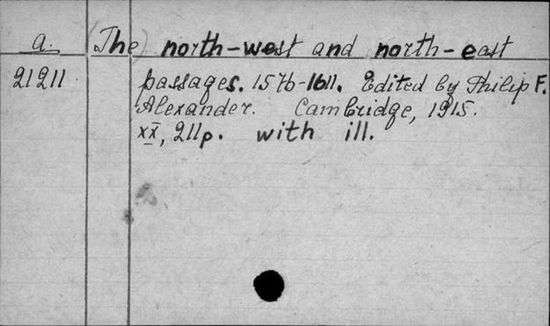 a. (The) north-west and north-east
21211 passages. 1576-1611. Edited by Philip F.
Alexander. Cambridge, 1915.
xx, 211p. with ill.